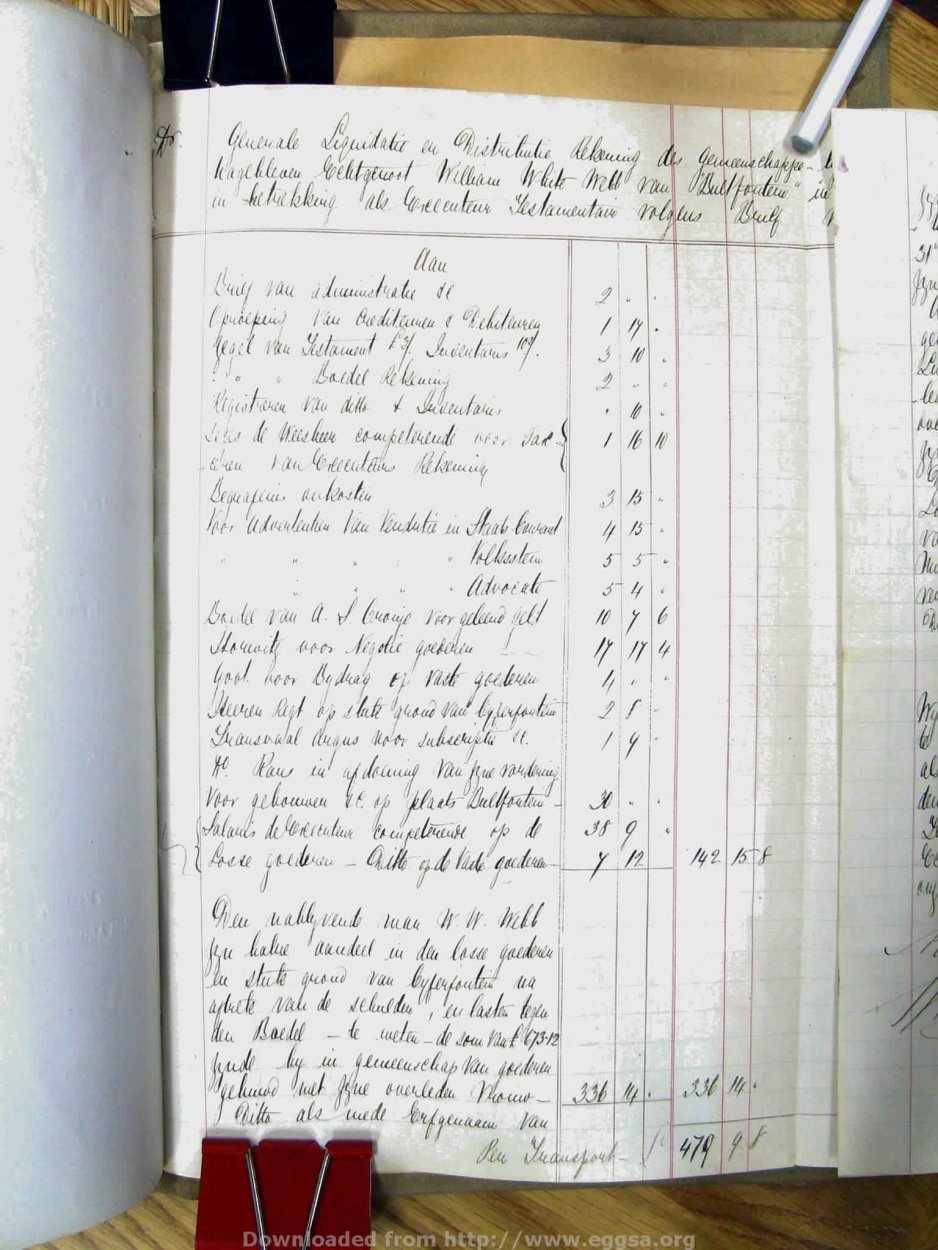 Dr.
Generale Liquidatie en Distributie Rekening des Gemeenschappe-
Nagebleven Echtgenoot William White Webb van "Bultfontein" in
in betrekking als Executeur Testamentair volgens Brief
Aan
Brief van administratie &c 2 " "
Oproeping van Crediteuren & Debiteuren 1 17 "
Zegel van Testament £3/. Inventaris 10/. 3 10 "
" " Boedel Rekening 2 " "
Registreren van ditto & Inventaris " 10 "
Leges de Weesheer competerende voor Tax- 1 16 10
eren van Executeurs Rekening
Begrafenis onkosten 3 15 "
Voor Advertentien van Vendutie in Staats Courant 4 15 "
" " " " Volksstem 5 5 "
" " " " Advocate 5 4 "
Boedel van A. S. Cronje voor geleend geld 10 7 6
Horwitz voor Negotie goederen 17 17 4
Govt. voor Bydrag op vaste goederen 4 " "
Heeren regt op stuk grond van Cyferfontein 2 8 "
Transvaal Argus voor subscriptie &c. 1 4 "
in afdoening van zyne vordering
Voor gebouwen &c. op plaats Bultfontein - 30 " "
Salaris de Executeur competerende op de 38 9 "
Losse goederen - Ditto op de Vaste goederen - 7 12 142 15 8
Den nablyvende man W. W. Webb
zyn halve aandeel in den losse goederen
en stuk grond van Cyferfontein na
aftrek van de schulden, en lasten tegen
den Boedel - te weten - de som van £ 673-12
zynde hy in gemeenschap van goederen
gehuwd met zyne overleden Vrouw - 336 14 " 336 14 "
Ditto als mede Erfgenaam van
Per Transport - £ 479 9 8
31
Downloaded from http://www.eggsa.org